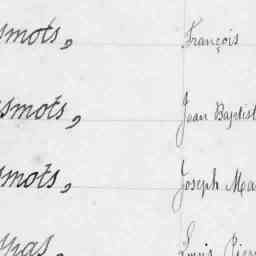 smots, François
smots, Jean Baptist
smots, Joseph Ma
spas, Louis Pier